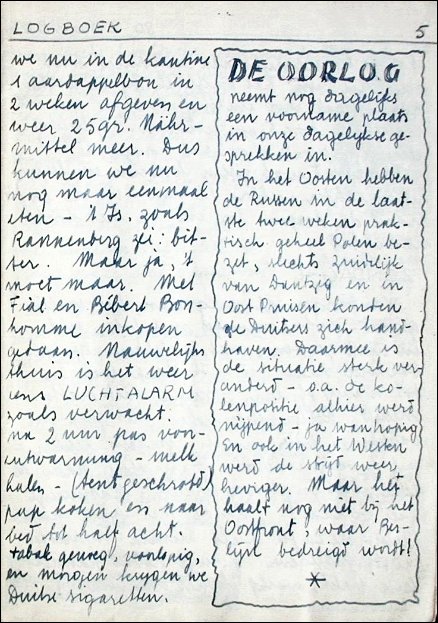 LOGBOEK
5
we nu in de kantine
1 aardappelbon in
2 weken afgeven en
weer 25gr. Nähr-
mittel meer. Dus
kunnen we nu
nog maar eenmaal
eten - 't Is, zoals
Rannenberg zei: bit-
ter. Maar ja, 't
moet maar. Met
Fial en Bébert Bon-
homme inkopen
gedaan. Nauwelijks
thuis is het weer
eens LUCHTALARM
zoals verwacht.
na 2 uur pas voor-
ontwarnung - melk
halen - (tent geschroid)
pap koken en naar
bed tot half acht.
tabak genoeg, voorlopig,
en morgen krijgen we
Duitse sigaretten.
DE OORLOG
neemt nog dagelijks
een voorname plaats
in onze dagelijkse ge-
sprekken in.
In het Oosten hebben
de Russen in de laat-
ste twee weken prak-
tisch geheel Polen be-
zet, slechts zuidelijk
van Dantzig en in
Oost Pruisen konden
de Duitsers zich hand-
haven. Daarmee is
de situatie sterk ver-
anderd - o.a. de ko-
lenpositie alhier werd
nijpend - ja wanhopig
En ook in het Westen
werd de strijd weer
heviger. Maar het
haalt nog niet bij het
Oostfront, waar Ber-
lijn bedreigd wordt!
*